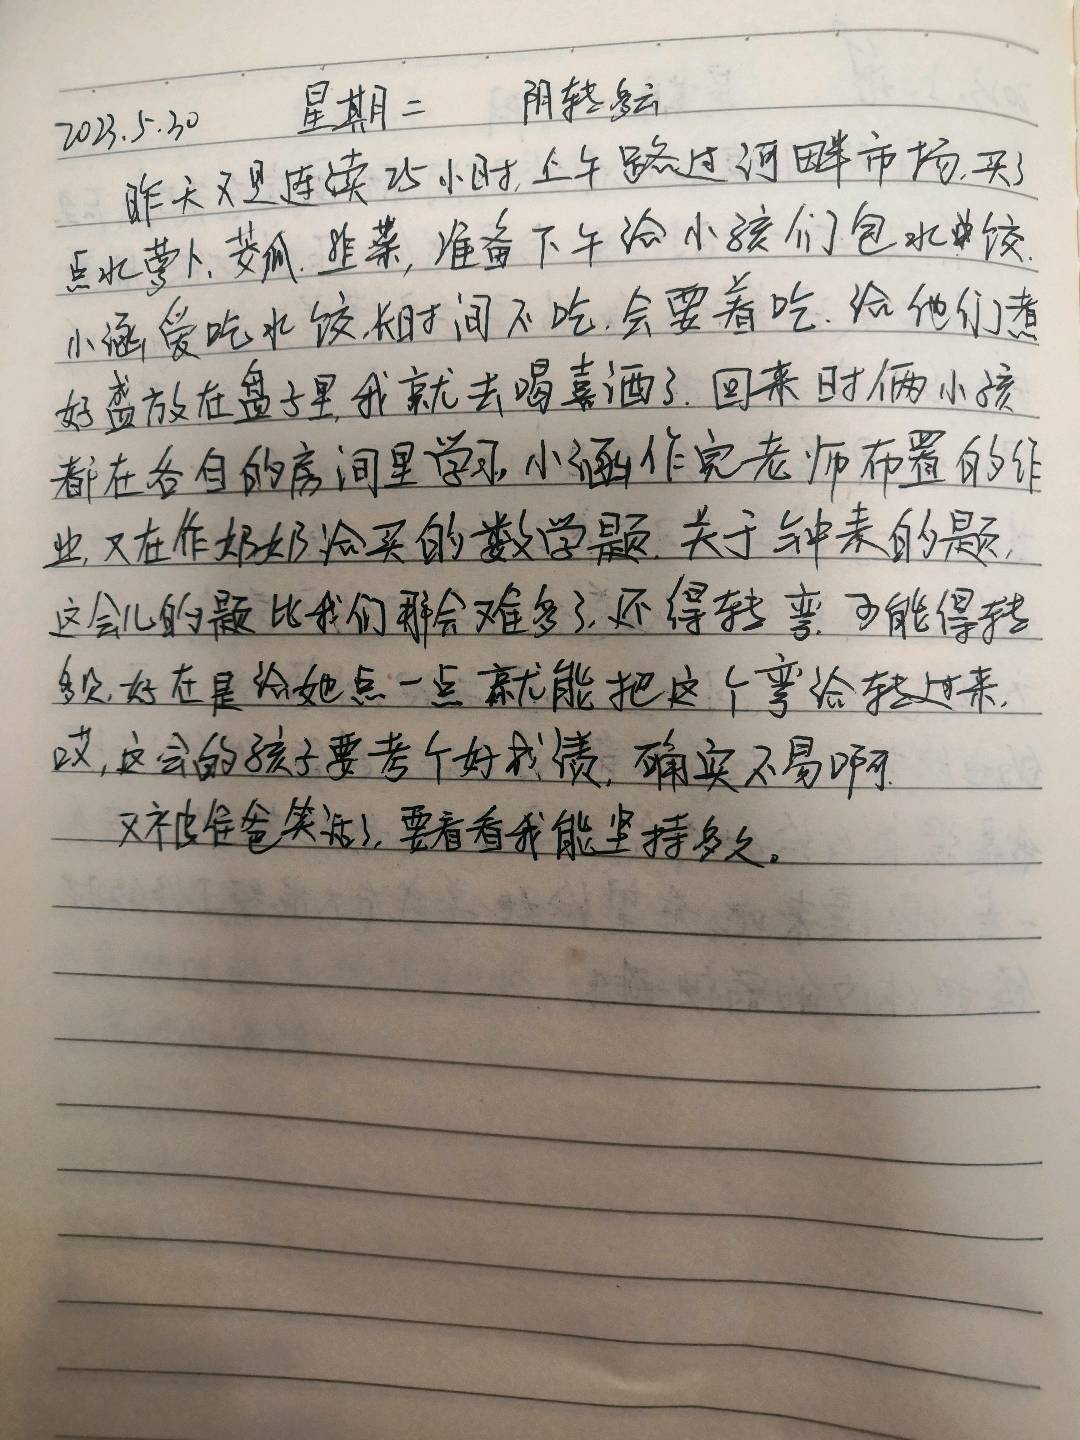 2023.5.30 星期二 阴转多云
昨天又是连续25小时,上午路过河畔市场,买了
点水萝卜,茭瓜.韭菜,准备下午给小孩们包水饺.
小涵爱吃水饺,长时间不吃,会要着吃.给他们煮
好盛放在盘子里,我就去喝喜酒了.回来时俩小孩
都在各自的房间里学习,小涵作完老师布置的作
业,又在作奶奶给买的数学题.关于钟表的题,
这会儿的题比我们那会难多了,还得转弯.可能得转
多次,好在是给她点一点就能把这个弯给转过来,
哎,这会的孩子要考个好成绩,确实不易啊.
又被爸笑话了,要看看我能坚持多久。